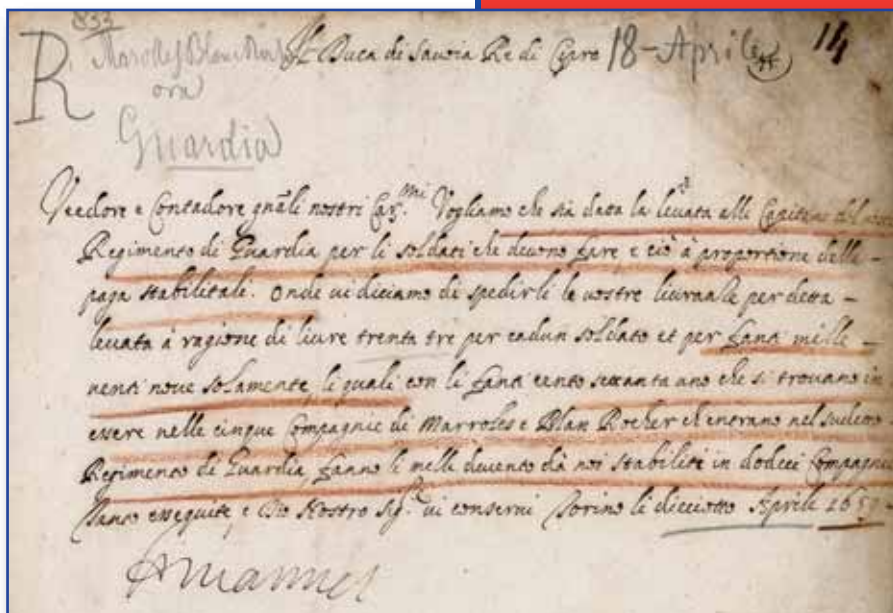 833
R Marolles Blanc Rocher
ora
Guardia
Il Duca di Savoia Re di Cipro 18 - Aprile 14
Veedore e Contadore gnãli nostri Car.mi Vogliamo che sia data la levata alli Capitani del
Regimento di Guardia per li soldati che devono fare, e ciò à proportione delle
paga stabilitali. Onde vi diciamo di spedirli le vostre livranze per detta
levata à ragione di livre trenta tre per cadun soldato et per fanti mille
venti nove solamente, li quali con li fanti cento settanta uno che si trovano in
essere nelle cinque Compagnie di Marroles e Blan Rocher ch'entrano nel sudetto
Regimento di Guardia, fanno li mille ducento dà noi stabiliti in dodeci Compagnie
Tanto esseguite, e Dio Nostro Sig.re vi conservi Torino li dicciotto Aprile 1659